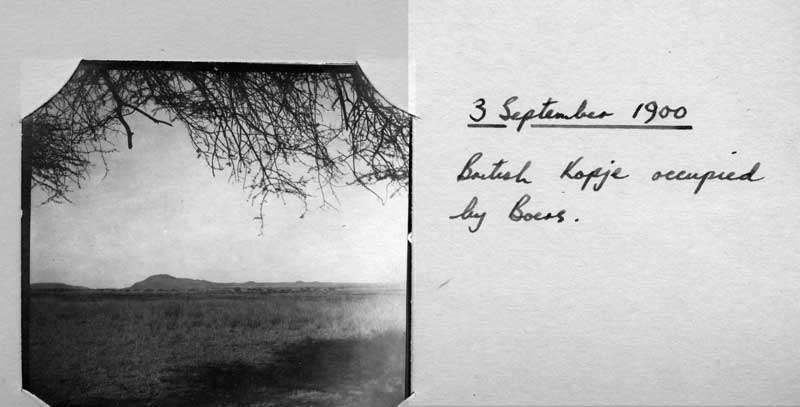 3 September 1900
British Kopje occupied
by Boers.